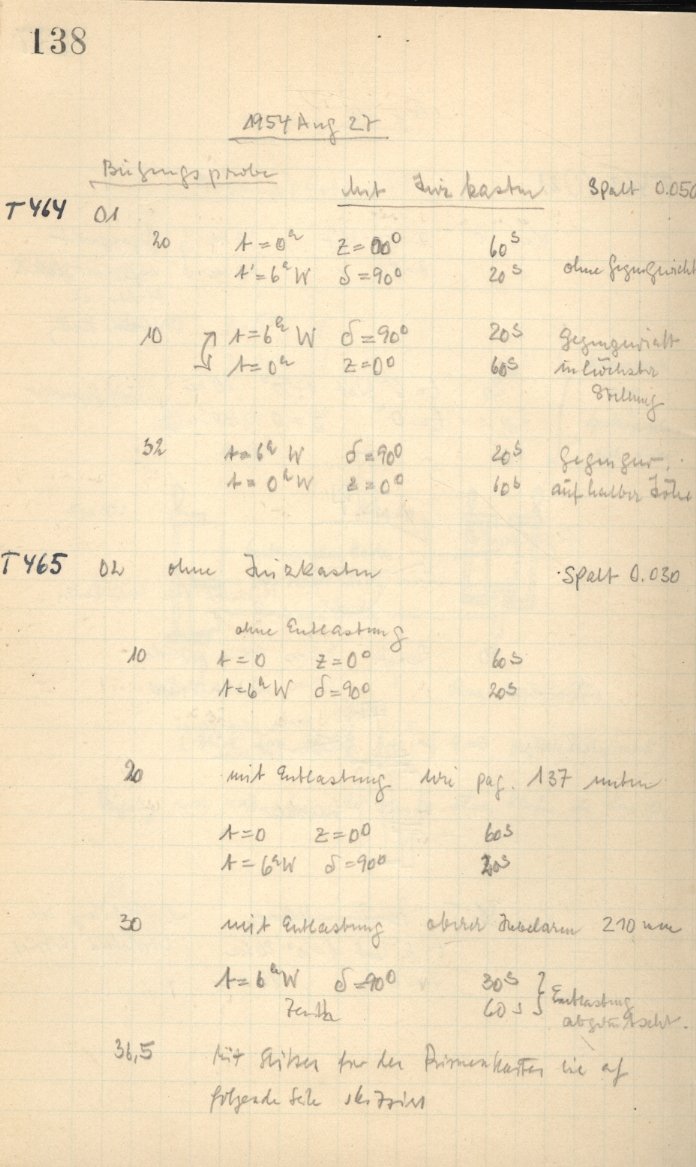 138
1954 Aug 27
Biegungsprobe
Mit Heizkasten Spalt 0.050
T464 01
20 t=0ʰ z=00⁰ 60ˢ
t=6ʰW δ=90⁰ 20ˢ ohne Gegengewicht
10 t=6ʰ W δ=90⁰ 20ˢ Gegengewicht
t=0ʰ z=0⁰ 60ˢ in höchster
Stellung
32 t=6ʰ W δ=90⁰ 20ˢ Gegengew.
t=0ʰ W z=0⁰ 60ˢ auf halber Höhe
T465 02 ohne Heizkasten Spalt 0.030
ohne Entlastung
10 t=0 z=0⁰ 60ˢ
t=6ʰW δ=90⁰ 20ˢ
20 mit Entlastung wie pag. 137 unten
t=0 z=0⁰ 60ˢ
t=6ʰW δ=90⁰ 20ˢ
30 mit Entlastung oberer Hebelarm 210 mm
t=6ʰW δ=90⁰ 30ˢ
Zenith 60ˢ } Entlastung
36,5 Mit Stützen für den Prismenkasten wie auf
folgende Seite skizziert